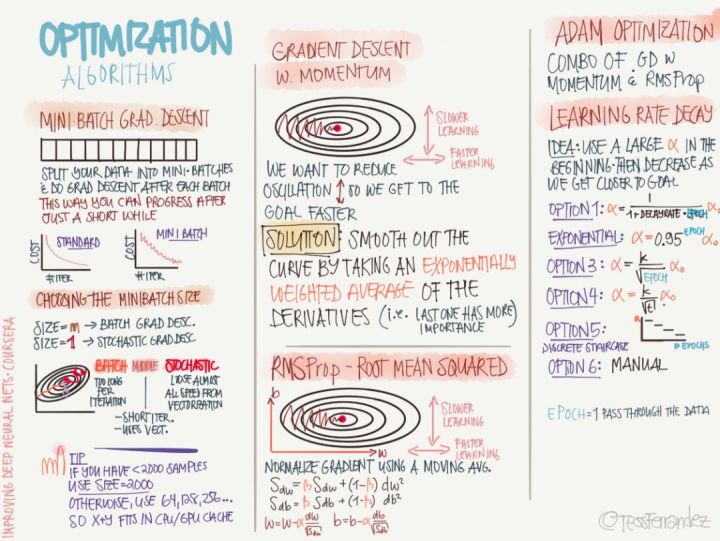 OPTIMIZATION
ALGORITHMS
MINI-BATCH GRAD. DESCENT
SPLIT YOUR DATA INTO MINI-BATCHES
& DO GRAD DESCENT AFTER EACH BATCH
THIS WAY YOU CAN PROGRESS AFTER
JUST A SHORT WHILE
COST
STANDARD
# ITER
COST
MINI BATCH
# ITER
CHOOSING THE MINIBATCH SIZE
SIZE=m → BATCH GRAD DESC.
SIZE=1 → STOCHASTIC GRAD DESC.
BATCH
TOO LONG
PER
ITERATION
MIDDLE
STOCHASTIC
LOOSE ALMOST
ALL SPEED FROM
VECTORIZATION
-SHORT ITER.
-USES VECT.
TIP
IF YOU HAVE <2000 SAMPLES
USE SIZE=2000
OTHERWISE, USE 64,128,256...
SO X+Y FITS IN CPU/GPU CACHE
IMPROVING DEEP NEURAL NETS · COURSERA
GRADIENT DESCENT
W. MOMENTUM
SLOWER
LEARNING
FASTER
LEARNING
WE WANT TO REDUCE
OSCILLATION ↕ SO WE GET TO THE
GOAL FASTER
SOLUTION: SMOOTH OUT THE
CURVE BY TAKING AN EXPONENTIALLY
WEIGHTED AVERAGE OF THE
DERIVATIVES (i.e. LAST ONE HAS MORE)
IMPORTANCE
RMSProp - ROOT MEAN SQUARED
b
SLOWER
LEARNING
W
FASTER
LEARNING
NORMALIZE GRADIENT USING A MOVING AVG.
Sdw = β Sdw + (1-β) dw²
Sdb = β Sdb + (1-β) db²
w=w-α dw/√Sdw b=b-α db/√Sdb
ADAM OPTIMIZATION
COMBO OF GD W
MOMENTUM & RMSProp
LEARNING RATE DECAY
IDEA: USE A LARGE α IN THE
BEGINNING THEN DECREASE AS
WE GET CLOSER TO GOAL
OPTION 1: α = 1/(1+DECAYRATE·EPOCH) α₀
EXPONENTIAL: α = 0.95^EPOCH α₀
OPTION 3: α = k/√EPOCH α₀
OPTION 4: α = k/√t α₀
OPTION 5:
DISCRETE STAIRCASE
# EPOCHS
OPTION 6: MANUAL
EPOCH = 1 PASS THROUGH THE DATA
@TessFerrandez